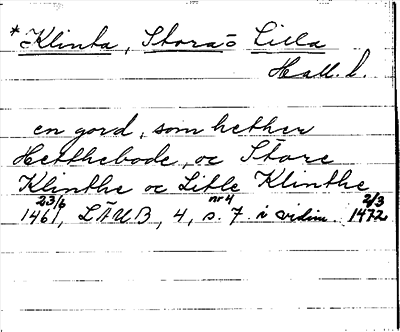 *Klinta, Stora= Lilla
Hall. l.
en gord, som hether
Hetthebode, oc Store
Klinthe oc Litle Klinthe
23/6 nr 4 2/3
1461, LÄUB, 4, s. 7 i vidim. 1472